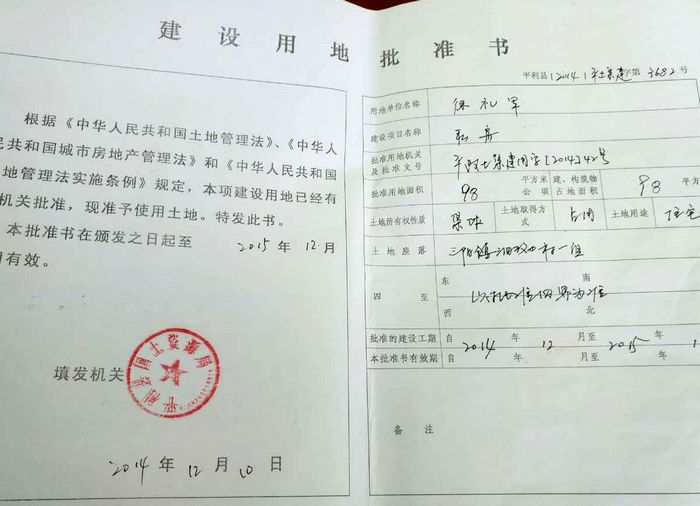 建设用地批准书
根据《中华人民共和国土地管理法》、《中华人
民共和国城市房地产管理法》和《中华人民共和国
地管理法实施条例》规定，本项建设用地已经有
机关批准，现准予使用土地。特发此书。
本批准书在颁发之日起至 2015 年 12 月
有效。
填发机关
平利县国土资源局
2014 年 12 月 10 日
平利县[2014] 字第 3682 号
用地单位名称 徐礼军
建设项目名称
批准用地机关及批准文号 平政土集建用字[2014]42号
批准用地面积 98 平方米 公顷 建、构筑物占地面积 98 平方
土地所有权性质 集体 土地取得方式 占用 土地用途 住宅
土地座落 三阳镇 村一组
四至 东 南 西 北
批准的建设工期 自 2014 年 12 月至 2015 年 1
本批准书有效期 自 年 月至 年
备注